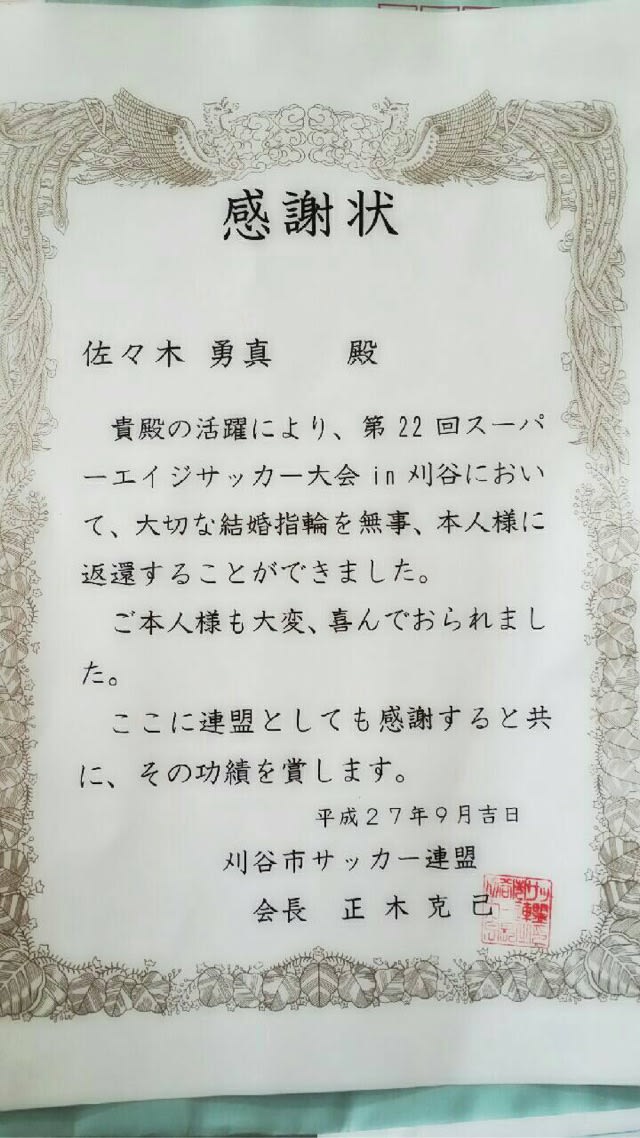 感謝状
佐々木 勇真 殿
貴殿の活躍により、第22回スーパ
ーエイジサッカー大会in刈谷におい
て、大切な結婚指輪を無事、本人様に
返還することができました。
ご本人様も大変、喜んでおられまし
た。
ここに連盟としても感謝すると共
に、その功績を賞します。
平成27年9月吉日
刈谷市サッカー連盟
会長 正木克己